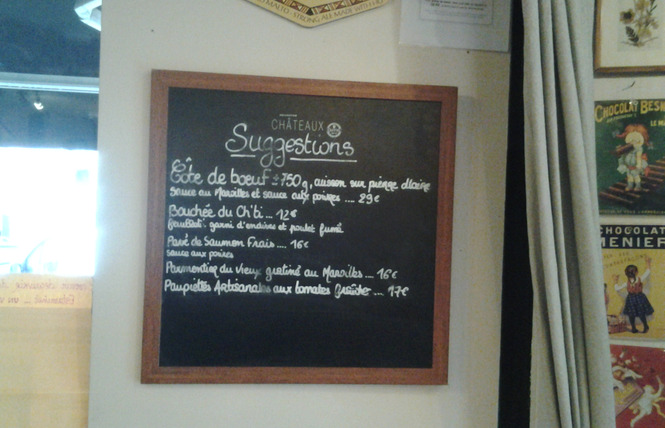 STRONG ALE
CHÂTEAUX
Suggestions
Côte de boeuf ± 750g, cuisson sur pierre
sauce au Maroilles et sauce aux poivres .... 29€
Bouchée du Ch'ti ... 12€
garni d'endives et poulet fumé
Pavé de Saumon Frais .... 16€
sauce aux poires
Parmentier du Vieux gratiné au Maroilles ... 16€
Paupiettes Artisanales aux tomates fraîches ... 17€
CHOCOLAT
CHOCOLAT
MENIER